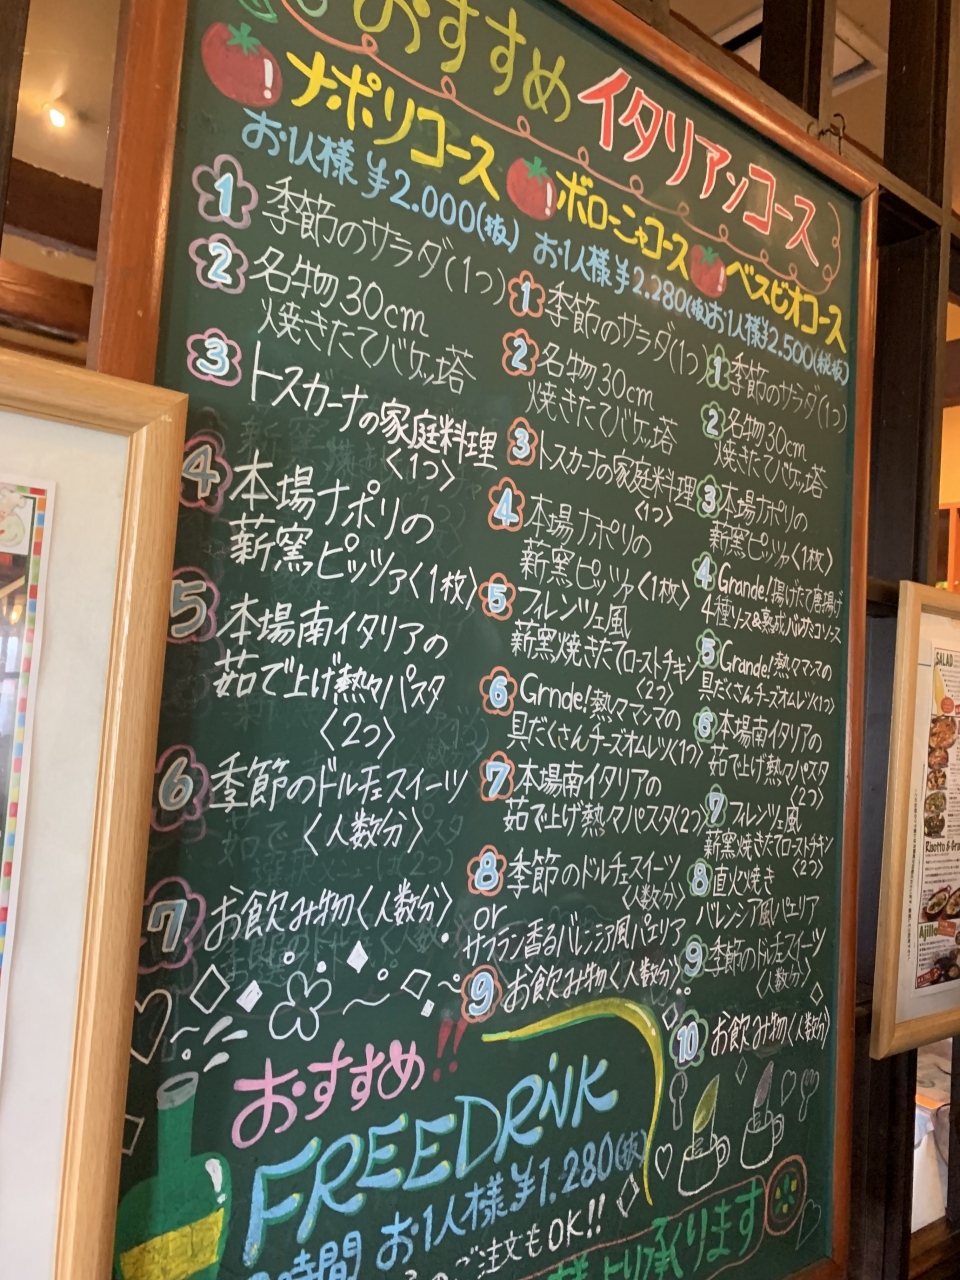 おすすめ イタリアンコース
ナポリコース
お1人様 ¥2.000(抜)
1 季節のサラダ(1つ)
2 名物30cm
焼きたてバケッ塔
3 トスカーナの家庭料理
<1つ>
4 本場ナポリの
薪窯ピッツァ<1枚>
5 本場南イタリアの
茹で上げ熱々パスタ
<2つ>
6 季節のドルチェスイーツ
<人数分>
7 お飲み物<人数分>
ボローニャコース
お1人様 ¥2.280(抜)
1 季節のサラダ(1つ)
2 名物30cm
焼きたてバケッ塔
3 トスカーナの家庭料理
<1つ>
4 本場ナポリの
薪窯ピッツァ<1枚>
5 フィレンツェ風
薪窯焼きたてローストチキン
<2つ>
6 Grnde!熱々マンマの
具だくさんチーズオムレツ(1つ)
7 本場南イタリアの
茹で上げ熱々パスタ(2つ)
8 季節のドルチェスイーツ
<人数分>
or
サフラン香るバレンシア風パエリア
9 お飲み物<人数分>
ベスビオコース
お1人様¥2.500(税抜)
1 季節のサラダ(1つ)
2 名物30cm
焼きたてバケッ塔
3 本場ナポリの
薪窯ピッツァ<1枚>
4 Grande!揚げたて唐揚げ
4種ソース&熟成バルサミコソース
5 Grande!熱々マンマの
具だくさんチーズオムレツ(1つ)
6 本場南イタリアの
茹で上げ熱々パスタ
<2つ>
7 フィレンツェ風
薪窯焼きたてローストチキン
<2つ>
8 直火焼き
バレンシア風パエリア
9 季節のドルチェスイーツ
<人数分>
10 お飲み物<人数分>
おすすめ!!
FREEDRiNK
時間 お1人様¥1.280(抜)
ご注文もOK!!
様より承ります
SALAD
Risotto & Gra
Ajillo